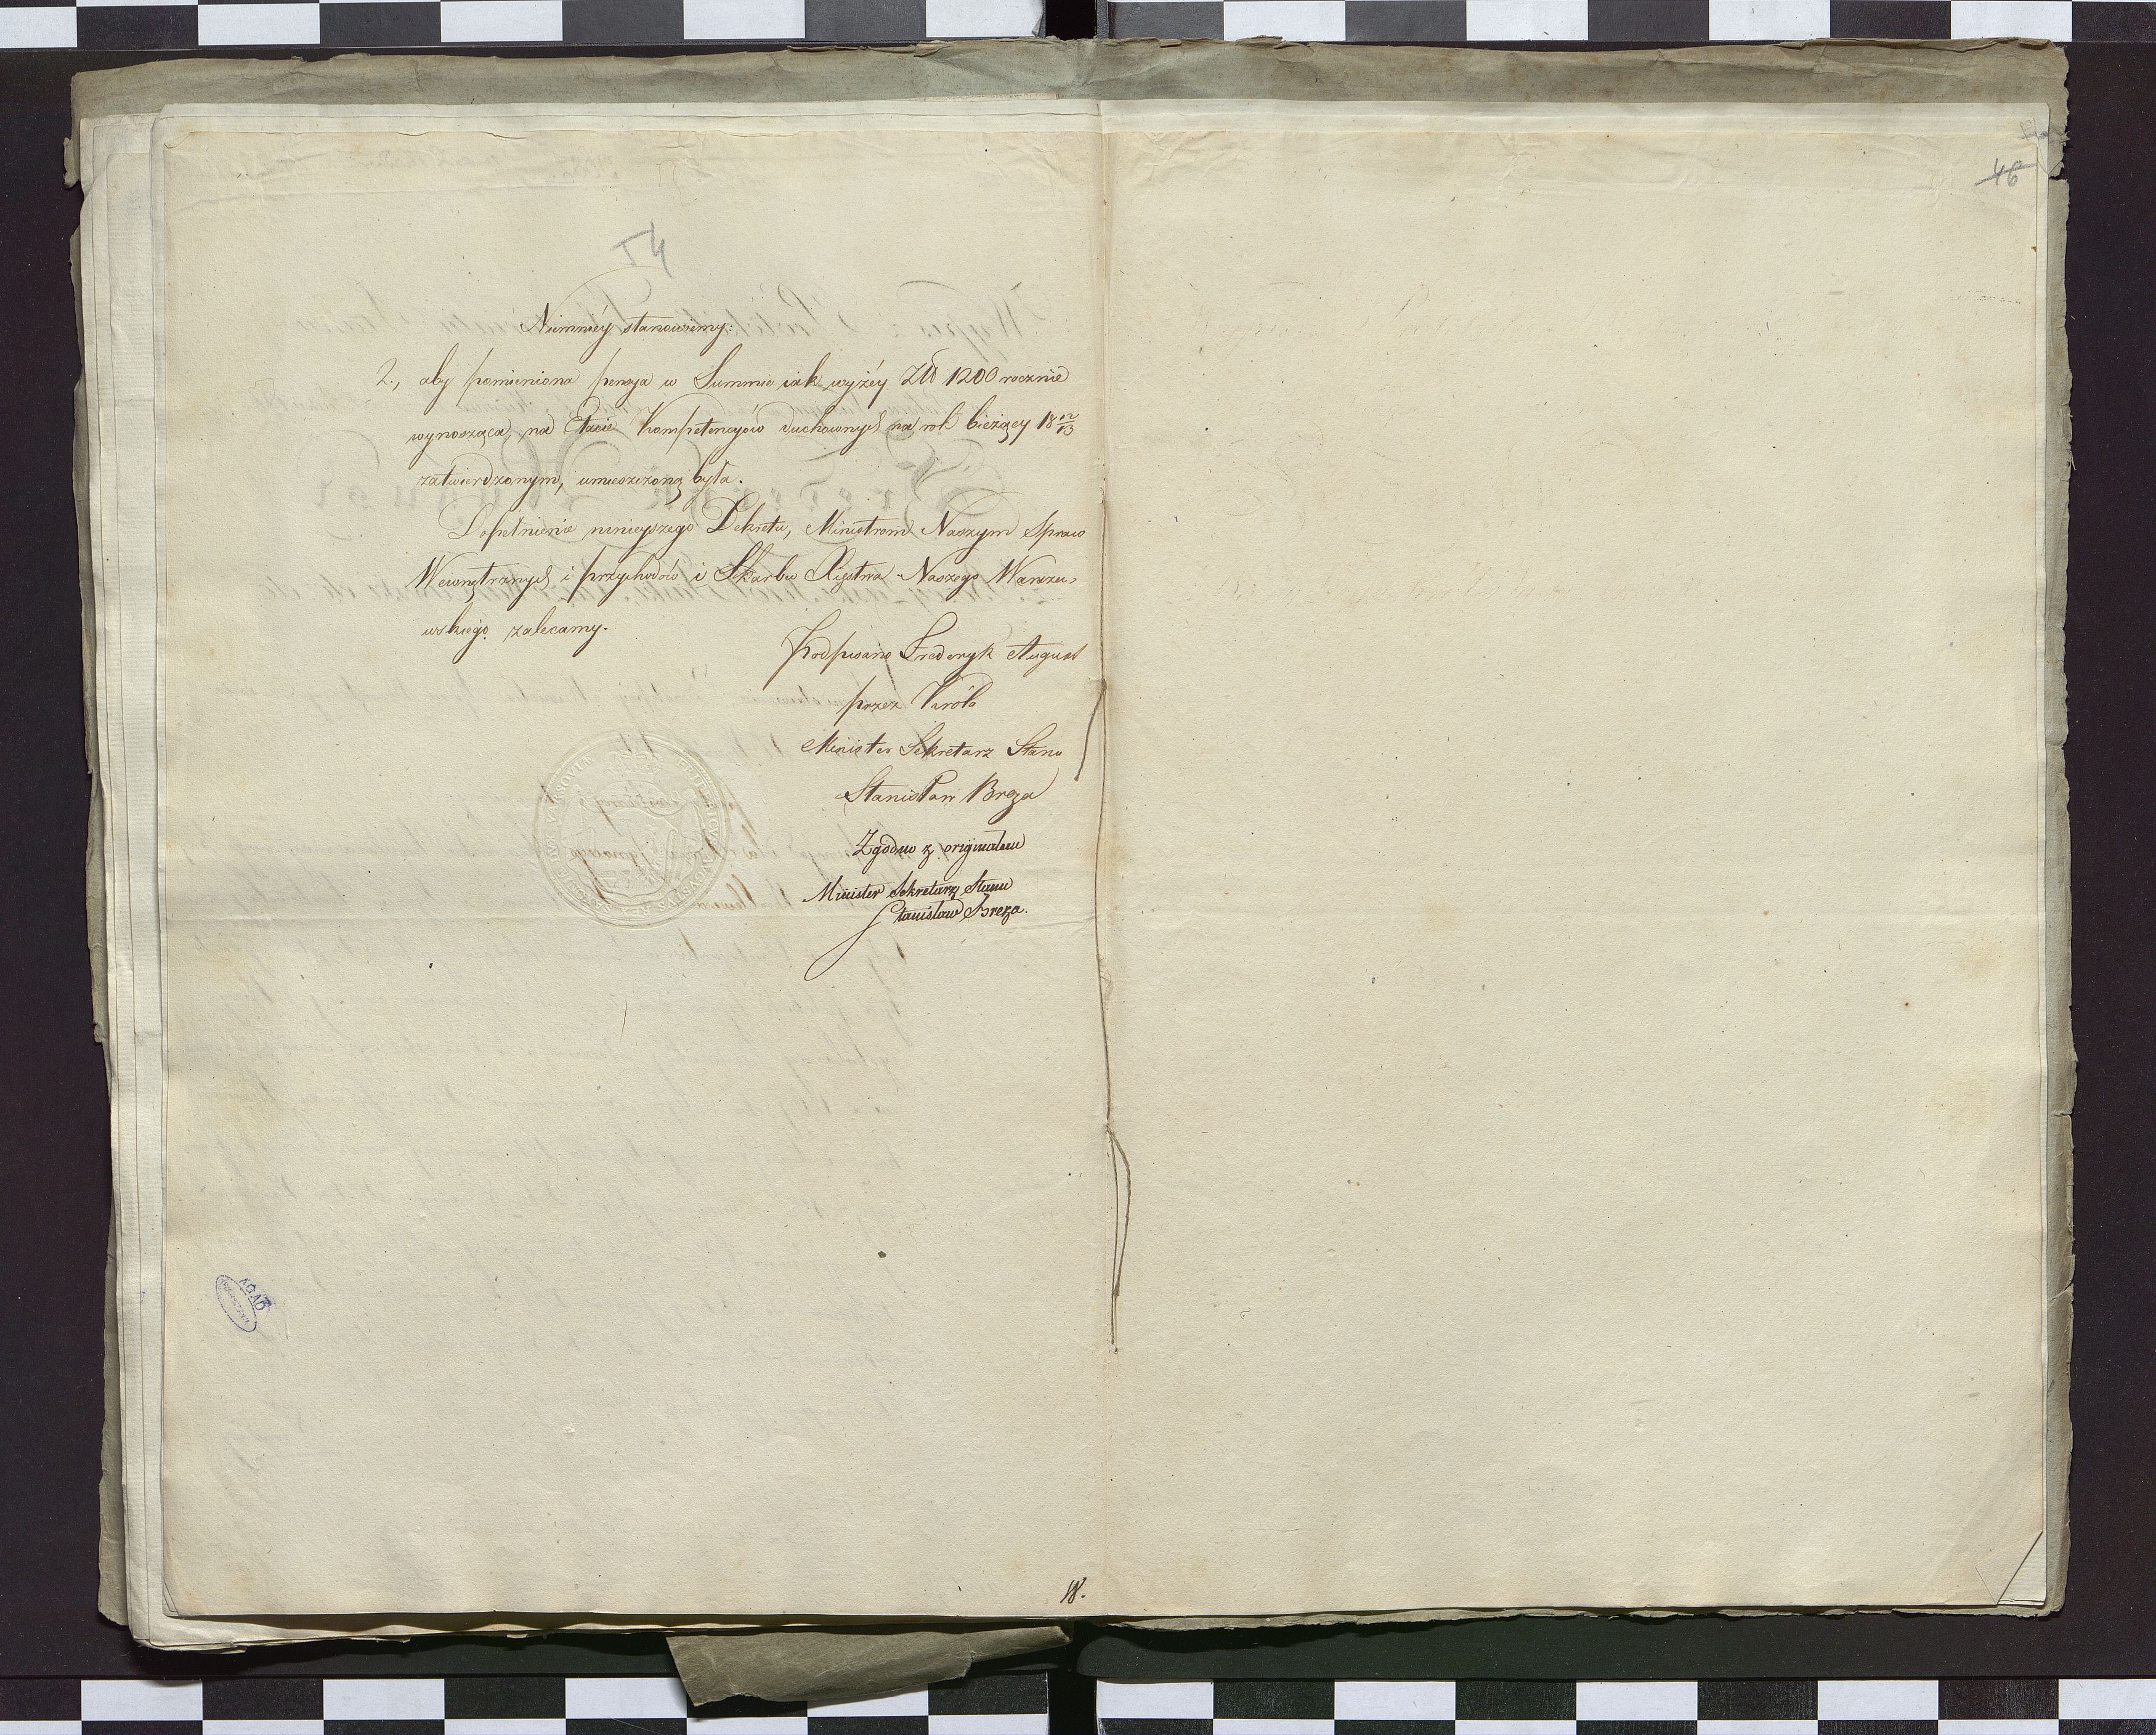 54
Niemniéy stanowiemy:
2., aby pomieniona pensya w Summie iak wyżéy Złł 1200 rocznie
wynosząca, na Etacie Kompetencyów duchownych na rok bieżący 18 12/13
zatwierdzonym, umieszczoną była.
Dopełnienie ninieyszego Dekretu, Ministrom Naszym Spraw
Wewnętrznych i przychodów i Skarbu Xięstwa Naszego Warsza-
wskiego zalecamy.
Podpisano Frederyk August
przez Króla
Minister Sekretarz Stanu
Stanisław Breza
Zgodno z originałem
Minister Sekretarz Stanu
Stanisław Breza.
AGAD
18.
46